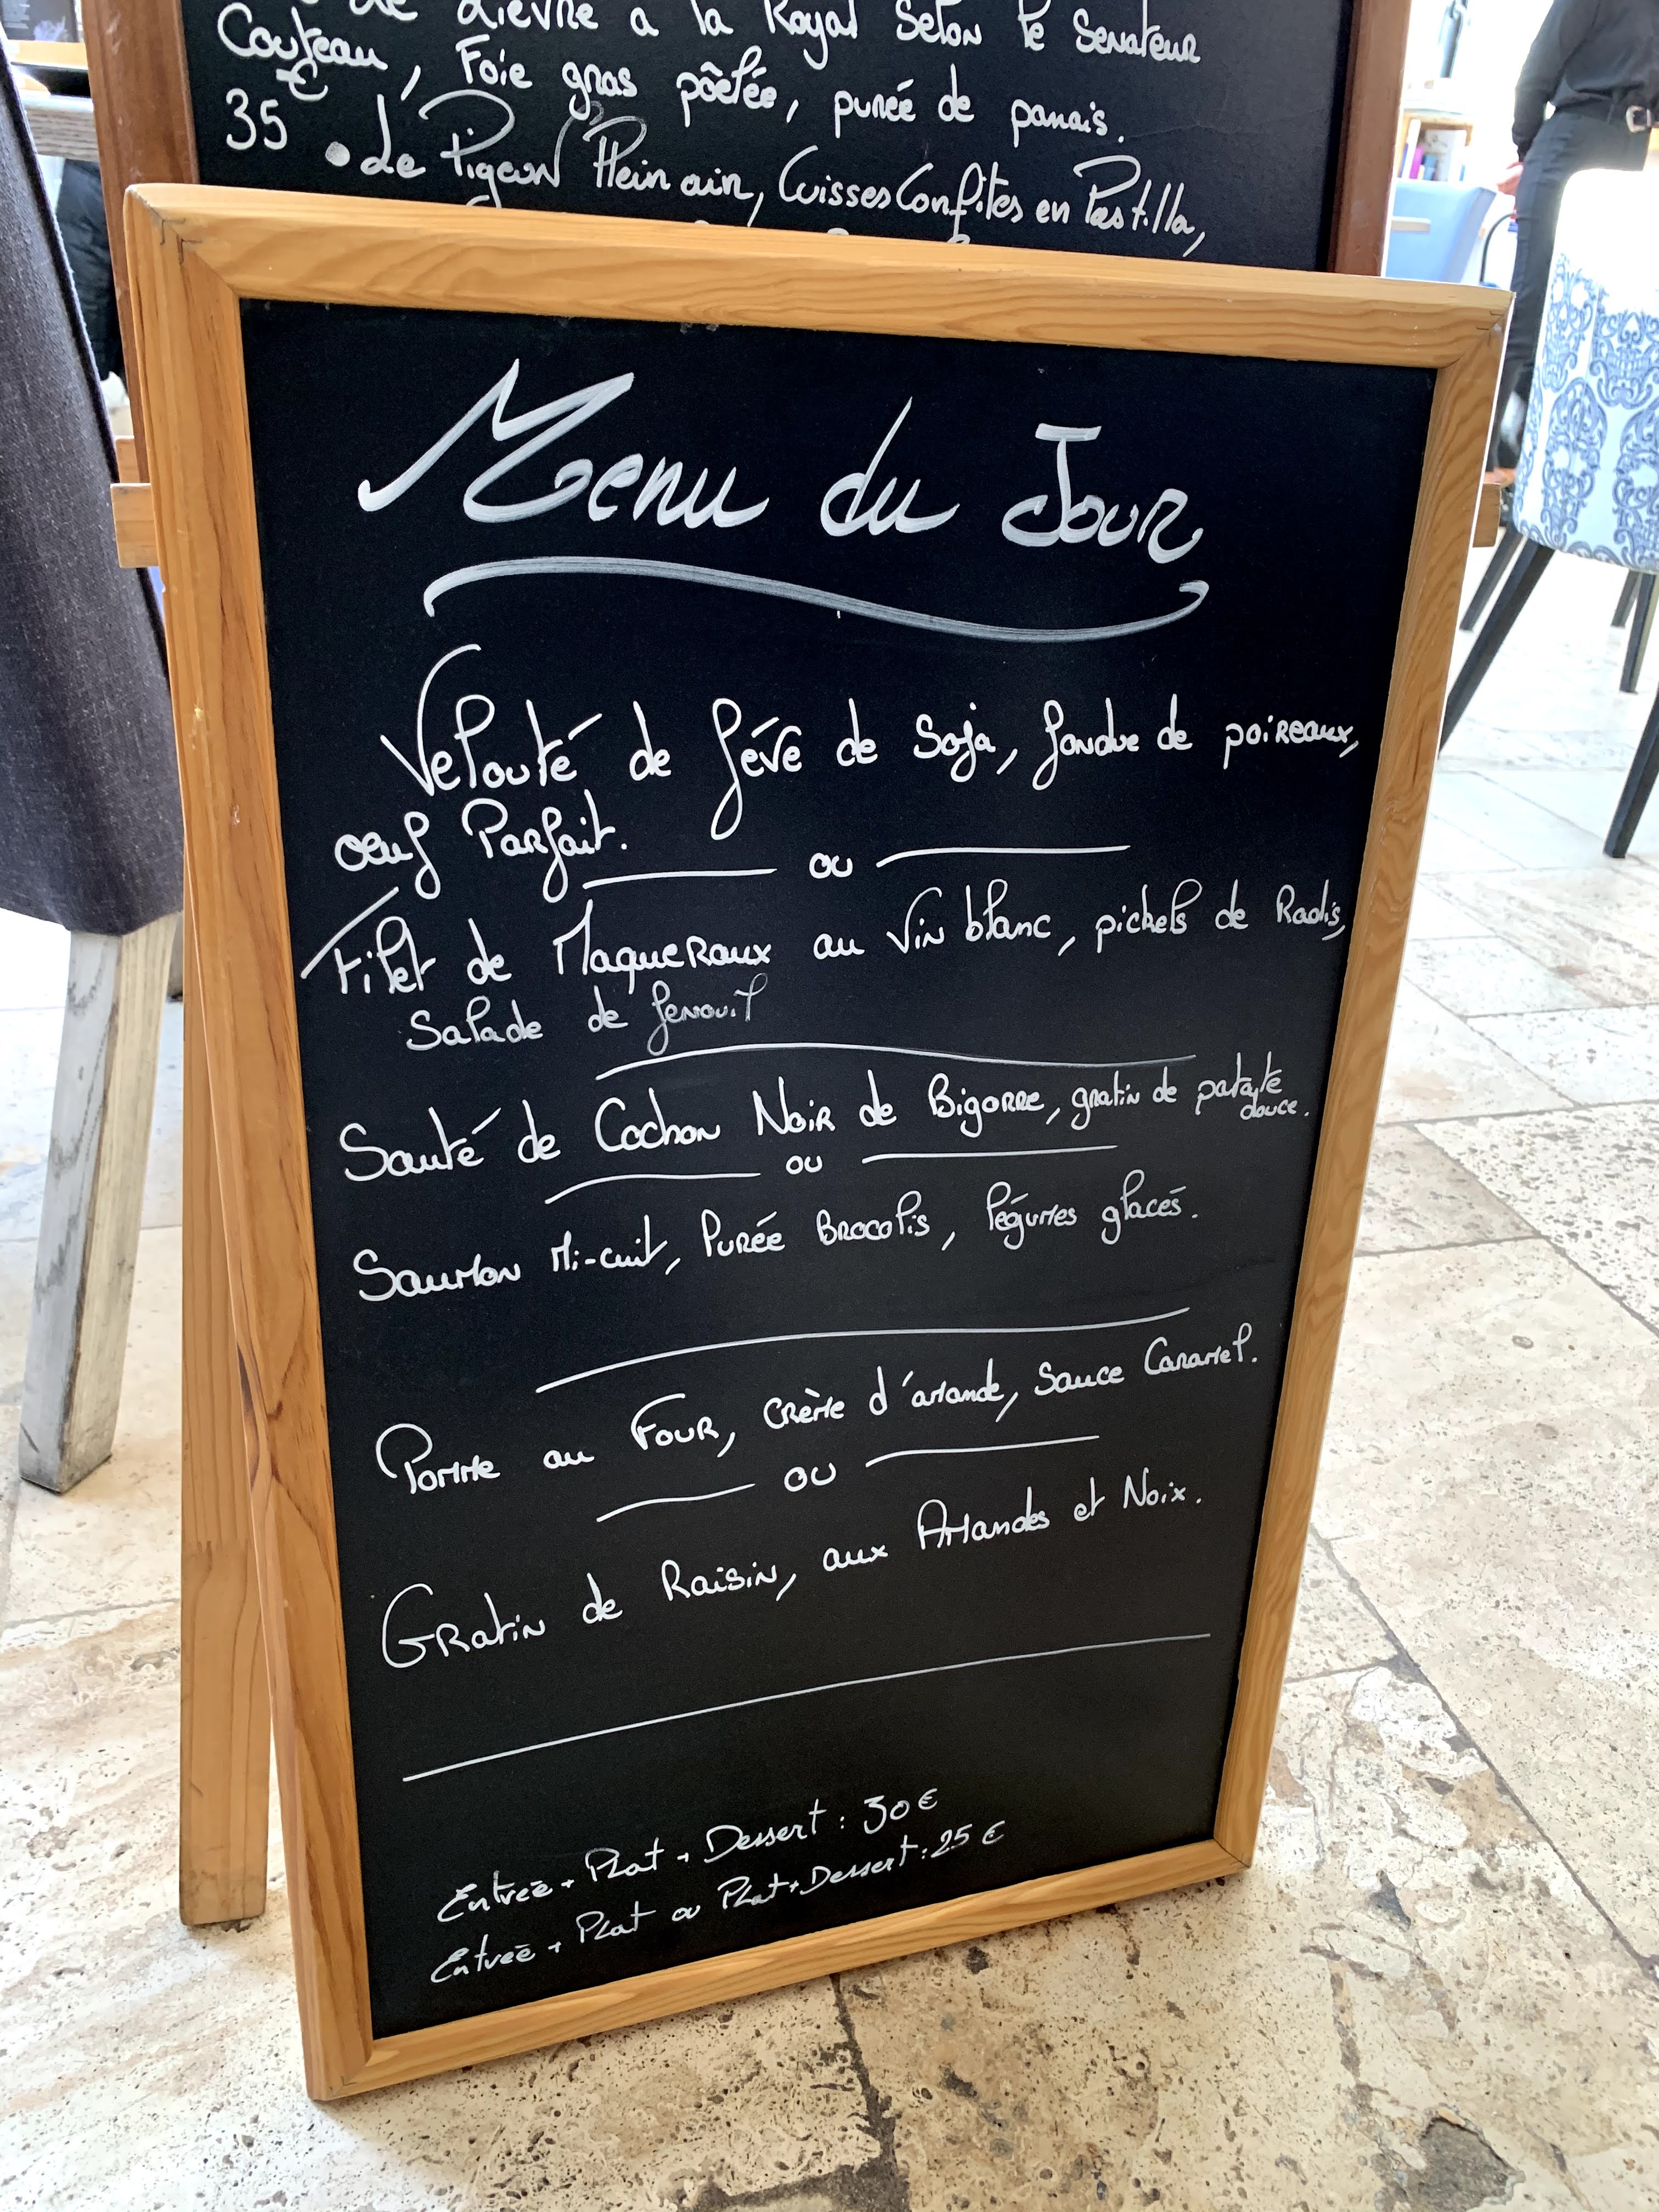 de Lièvre à la Royal Selon le Senateur
Couteau, Foie gras pôelée, purée de panais.
35€
• de Pigeon Plein air, Cuisses Confites en Pastilla,
Menu du Jour
Velouté de féve de Soja, fondue de poireaux,
oeuf Parfait.
ou
Filet de Maqueraux au Vin blanc, pickels de Radis,
Salade de fenouil
Sauté de Cochon Noir de Bigorre, gratin de patate
douce.
ou
Saumon Mi-cuit, Purée Brocolis, légumes glacés.
Pomme au Four, crème d'amande, Sauce Caramel.
ou
Gratin de Raisin, aux Amandes et Noix.
Entrée + Plat + Dessert : 30€
Entrée + Plat ou Plat + Dessert : 25€